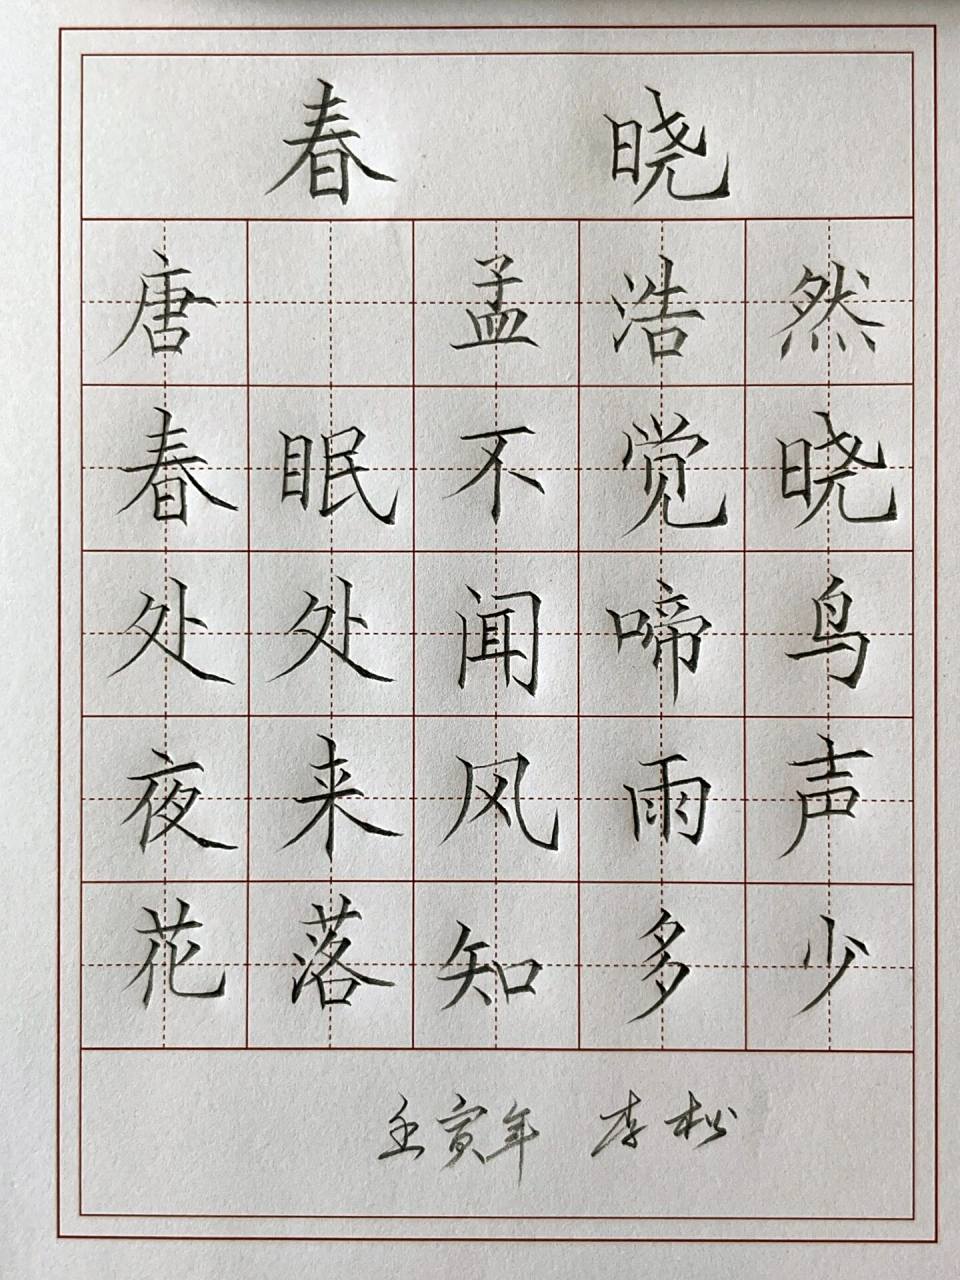 春 晓
唐 孟浩然
春眠不觉晓
处处闻啼鸟
夜来风雨声
花落知多少
壬寅年 李松